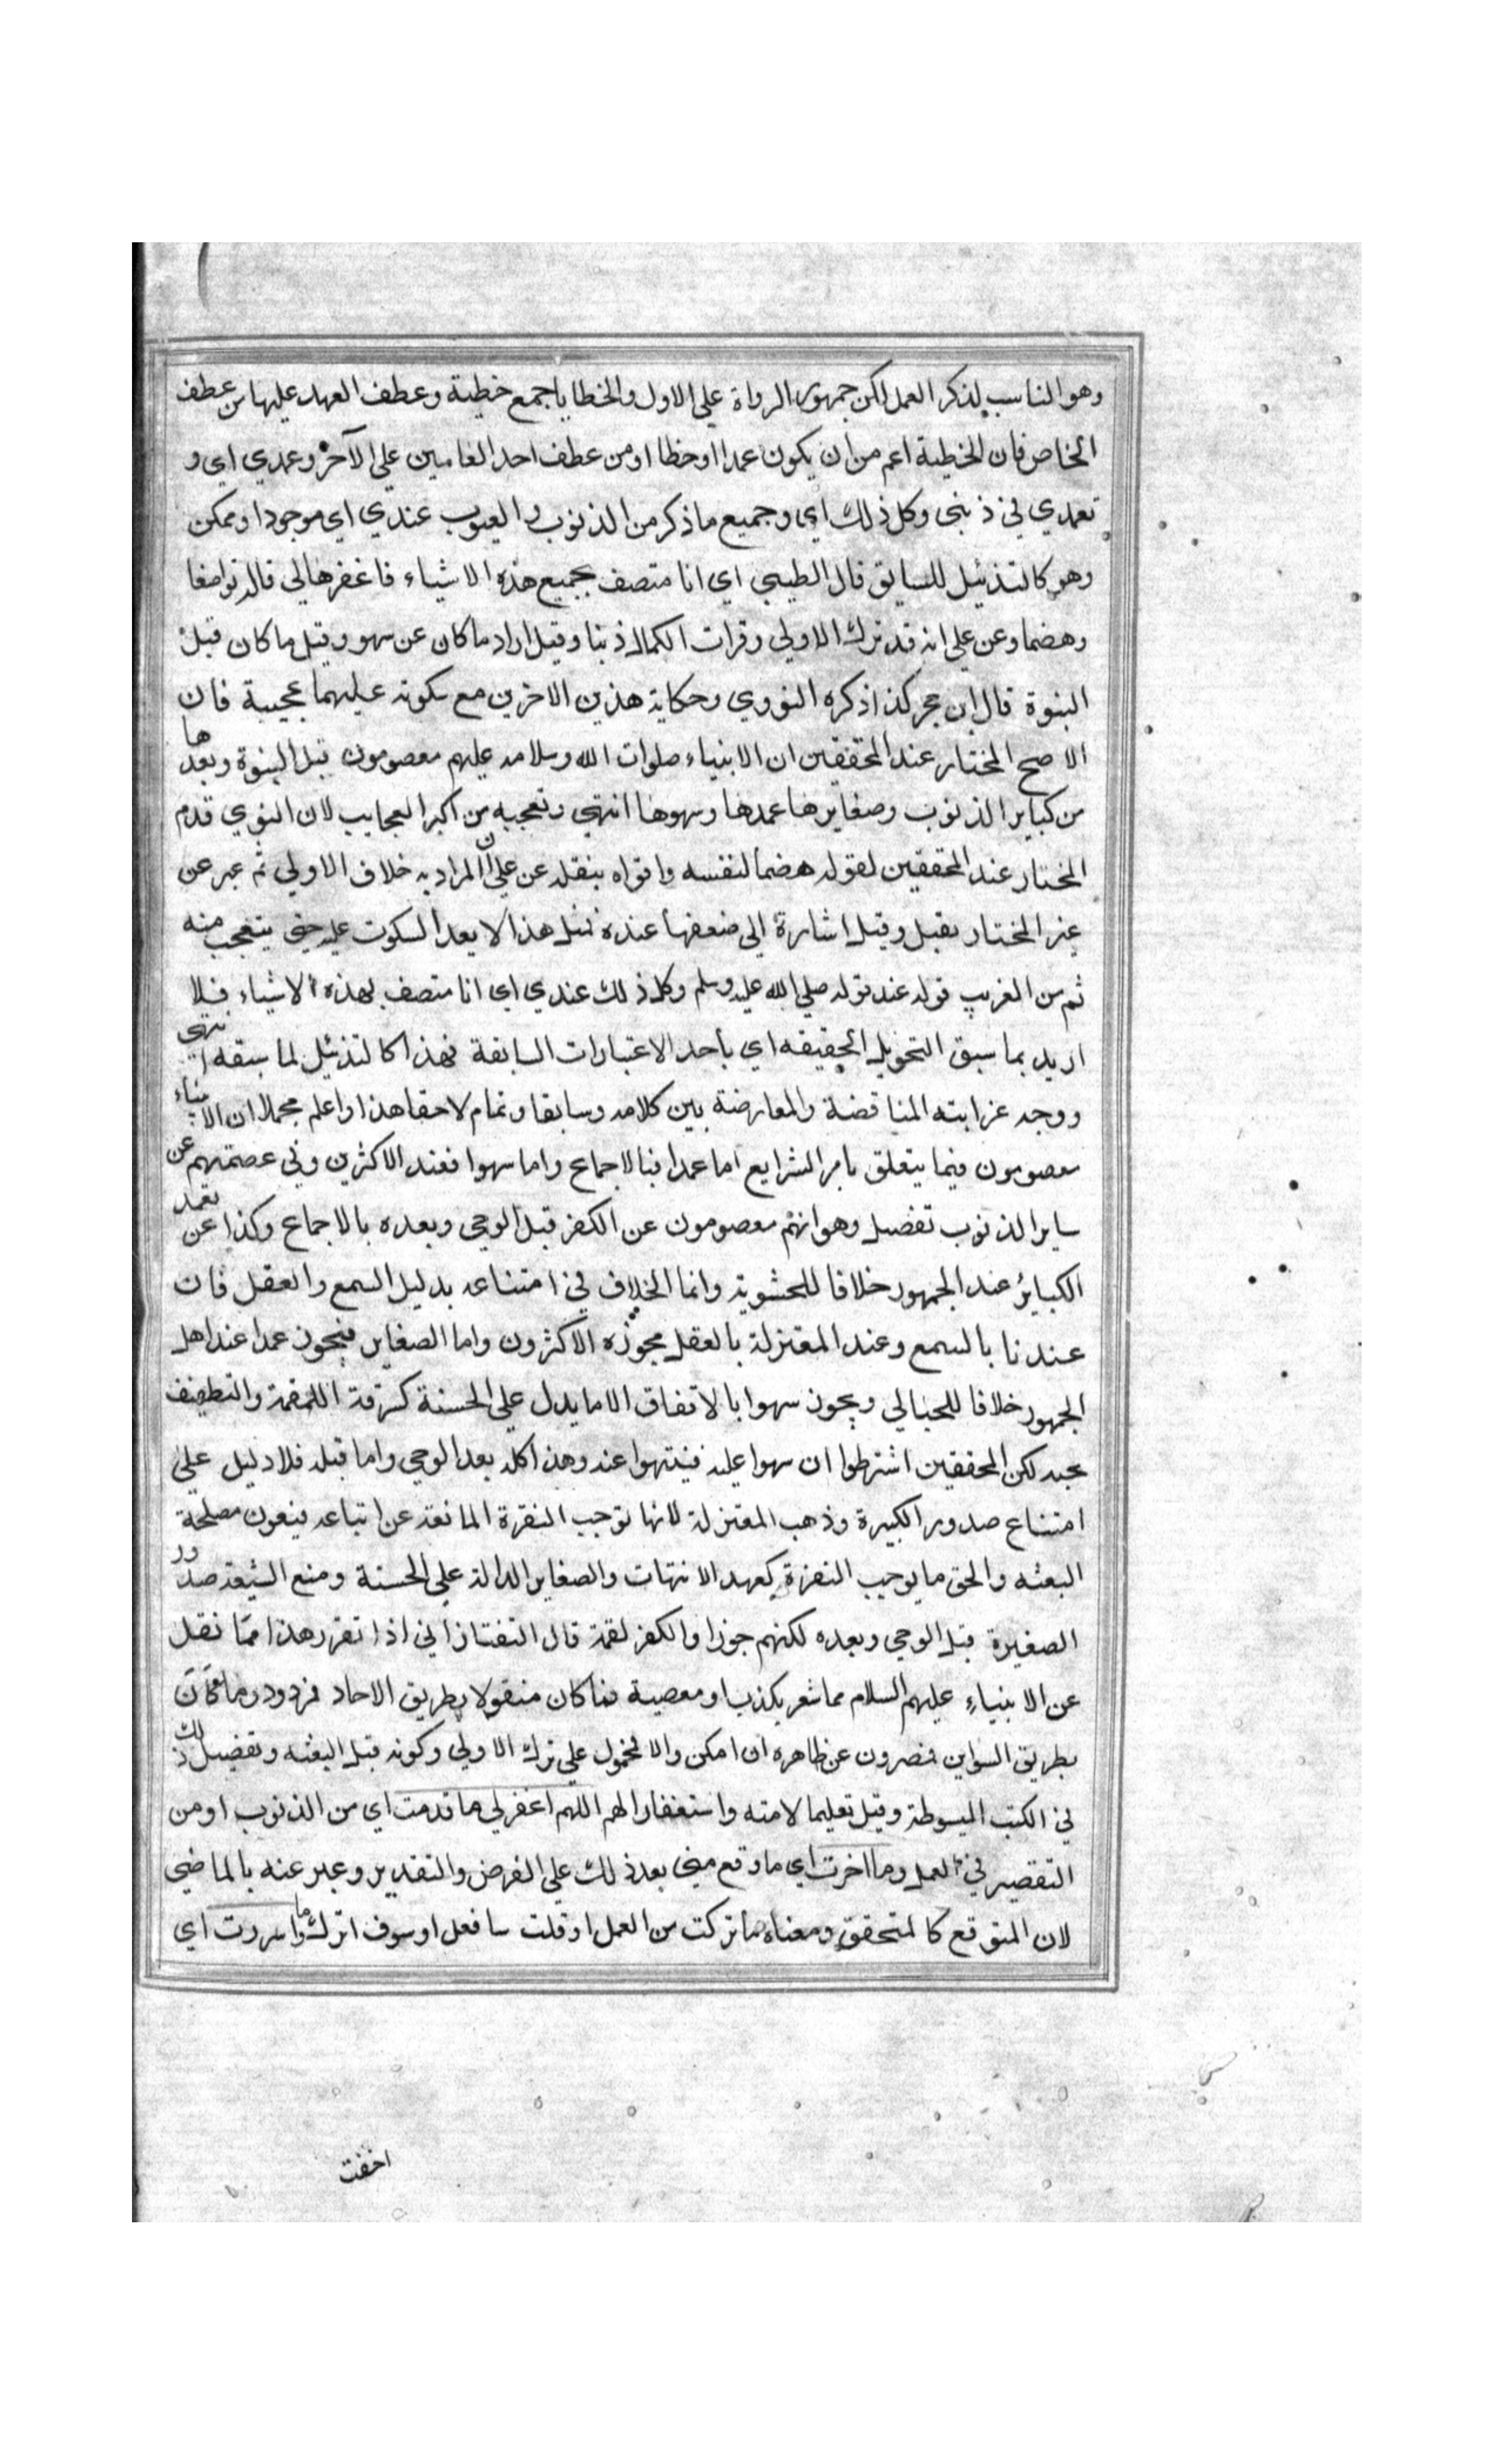 وهو المناسب لذكر العمل لكن جمهور الرواة على الاول والخطايا جمع خطية وعطف العمد عليها من عطف
الخاص فان الخطية اعم من ان يكون عمدا او خطا او من عطف احد العامين على الآخر وعمدي اي و
تعمدي في ذنبي وكل ذلك اي وجميع ما ذكر من الذنوب والعيوب عندي اي موجود او ممكن
وهو كالتذئيل للسابق قال الطيبي اي انا متصف بجميع هذه الاشياء فاغفرها لي قاله تواضعا
وهضما وعن علي انه قد ترك الاولى وفوات الكمال ذنبا وقيل اراد ما كان عن سهو وقيل ما كان قبل
النبوة قال ابن حجر كذا ذكره النووي وحكاية هذين الاخرين مع سكوته عليهما عجيبة فان
الاصح المختار عند المحققين ان الانبياء صلوات الله وسلامه عليهم معصومون قبل النبوة وبعدها
من كباير الذنوب وصغايرها عمدها وسهوها انتهى وتعجبه من اكبر العجايب لان النووي قدم
المختار عند المحققين لقوله هضما لنفسه وقواه بنقله عن علي ان المراد به خلاف الاولى ثم عبر عن
غير المختار بقيل وقيل اشارة الى ضعفها عنده فمثل هذا لا يعد السكوت عليه حتى يتعجب منه
ثم من الغريب قوله عند قوله صلى الله عليه وسلم وكل ذلك عندي اي انا متصف بهذه الاشياء فيلا
اريد بما سبق التحويل الحقيقه اي بأحد الاعتبارات السابقة فهذا كالتذئيل لما سبقه انتهى
ووجه غرابته المناقضة والمعارضة بين كلامه وسابقا وتمام لاحقا هذا واعلم مجملا ان الانبياء
معصومون فيما يتعلق بامر الشرايع اما عمدا فبالاجماع واما سهوا فعند الاكثرين وفي عصمتهم عن
ساير الذنوب تفصيل وهو انهم معصومون عن الكفر قبل الوحي وبعده بالاجماع وكذا عن تعمد
الكبائر عند الجمهور خلافا للحشوية وانما الخلاف في امتناعه بدليل السمع والعقل فان
عندنا بالسمع وعند المعتزلة بالعقل مجوزه الاكثرون واما الصغاير فيجوز عمدا عند اهل
الجمهور خلافا للجبالي ويجوز سهوا بالاتفاق الا ما يدل على الخسة كسرقة اللقمة والتطفيف
بحبه لكن المحققين اشترطوا ان سهوا عليه فينتهوا عنه وهذا كله بعد الوحي واما قبله فلا دليل على
امتناع صدور الكبيرة وذهب المعتزلة لانها توجب النفرة المانعة عن اتباعه فيفوت مصلحة
البعثه والحق ما يوجب النفرة كعهد الانتهات والصغاير الدالة على الخسة ومنع الشيعة صدور
الصغيرة قبل الوحي وبعده لكنهم جوزا والكفر لقمة قال التفتازاني اذا تقرر هذا فما نقل
عن الانبياء عليهم السلام مما شعر بكذب او معصية فما كان منقولا بطريق الاحاد فمردود وما كان
بطريق التواتر فمصرون عن ظاهره ان امكن والا فمحمول على ترك الاولى وكونه قبل البعثه وتفصيل ذلك
في الكتب المبسوطة وقيل تعليما لامته واستغفارا لهم اللهم اغفر لي ما قدمت اي من الذنوب او من
التقصير في العمل وما اخرت اي ما وقع مني بعد ذلك على الفرض والتقدير وعبر عنه بالماضي
لان المتوقع كالمتحقق ومعناه ما تركت من العمل او قلت سافعل او سوف اترك وما اسررت اي
اخفت